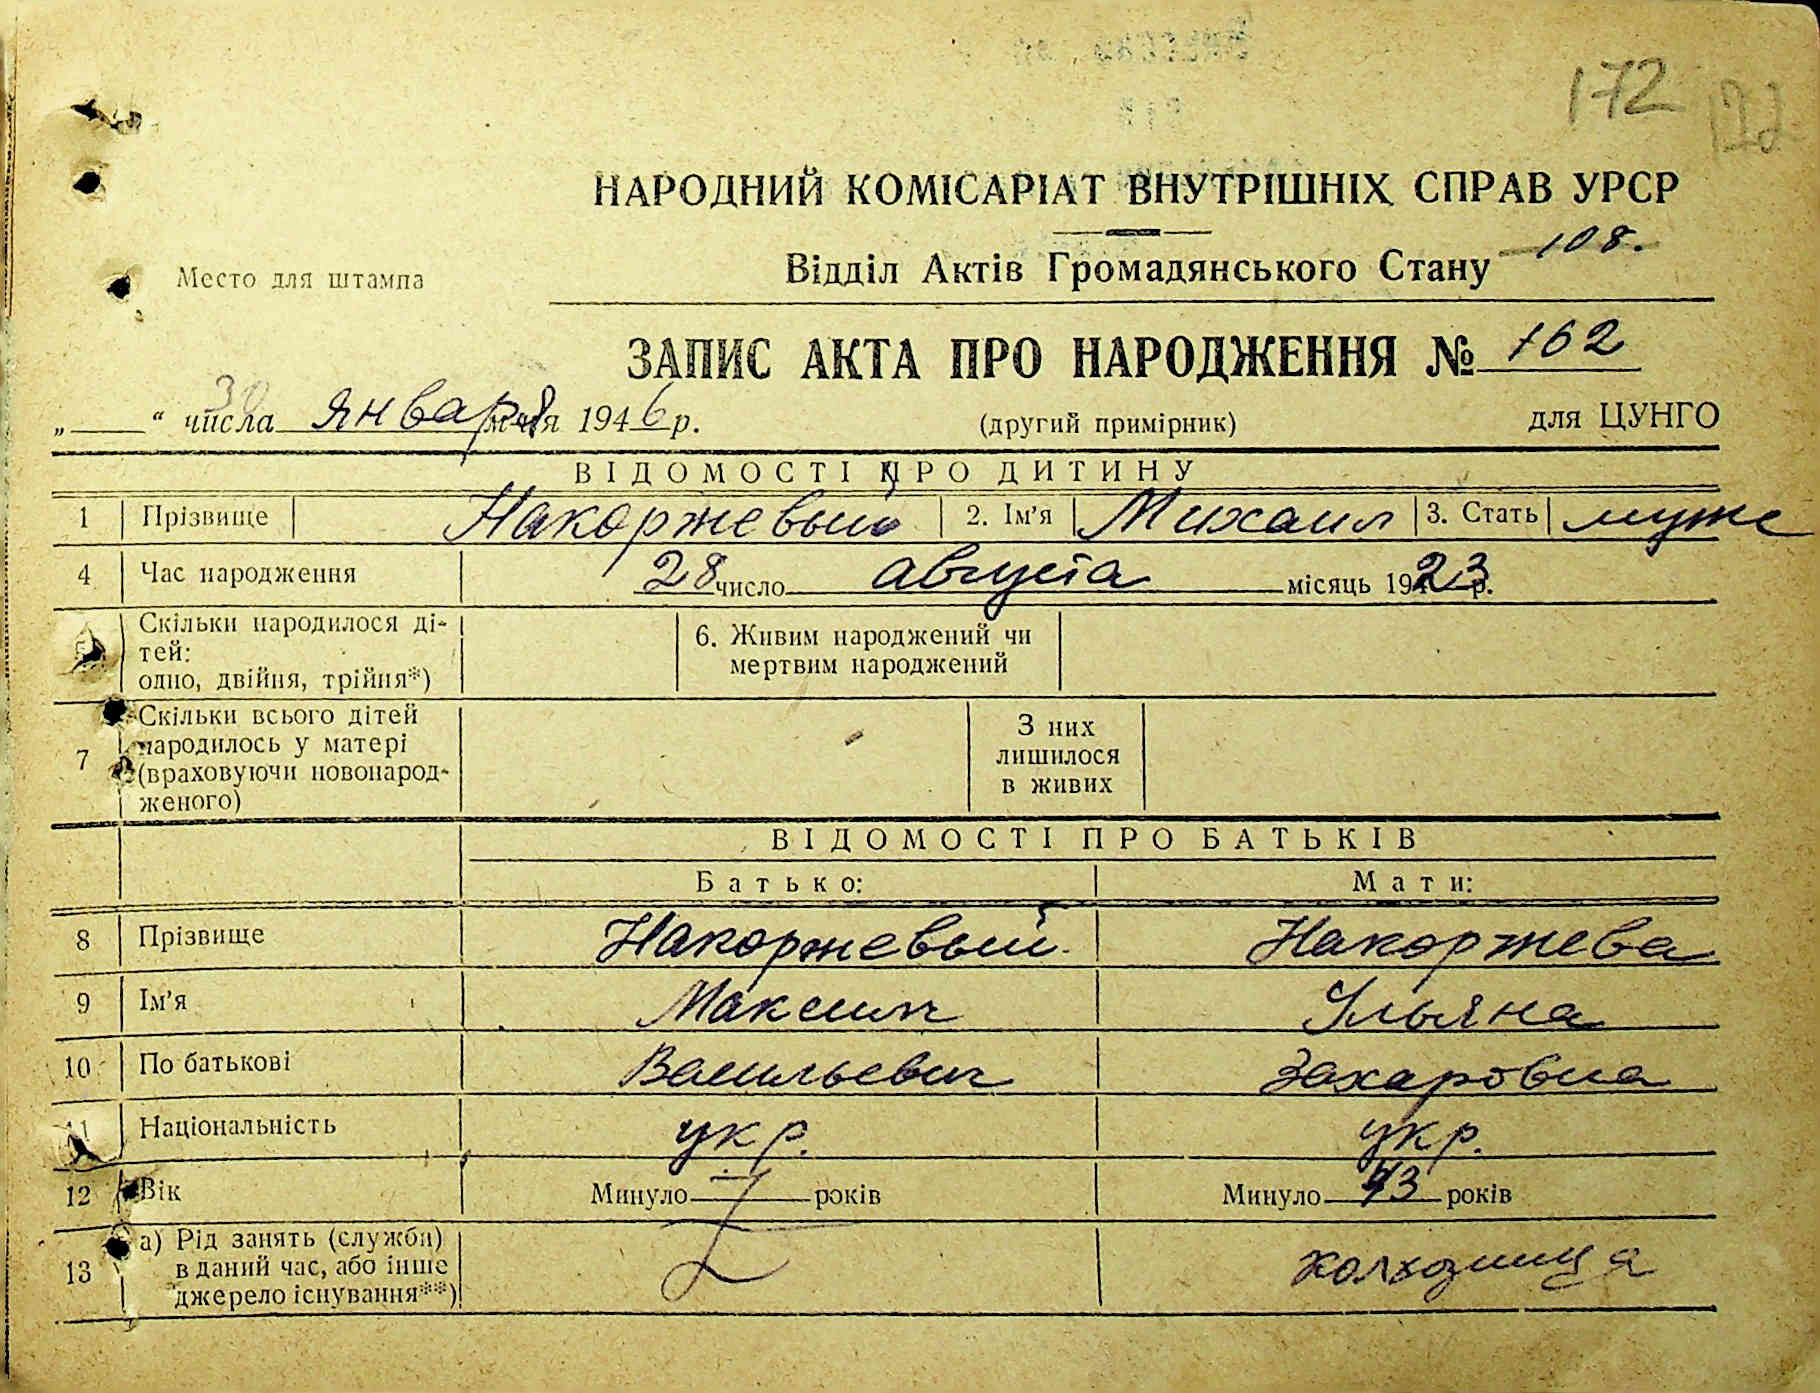 172
НАРОДНИЙ КОМІСАРІАТ ВНУТРІШНІХ СПРАВ УРСР
108.
Место для штампа
Відділ Актів Громадянського Стану
ЗАПИС АКТА ПРО НАРОДЖЕННЯ № 162
„ 30 “ числа января м-ця 1946 р. (другий примірник) для ЦУНГО
ВІДОМОСТІ ПРО ДИТИНУ
1 Прізвище Накоржевый 2. Ім'я Михаил 3. Стать муже
4 Час народження 28 число августа місяць 1923 р.
5 Скільки народилося ді-
тей:
одно, двійня, трійня*)
6. Живим народжений чи
мертвим народжений
7 Скільки всього дітей
народилось у матері
(враховуючи новонарод-
женого)
З них
лишилося
в живих
ВІДОМОСТІ ПРО БАТЬКІВ
Батько: Мати:
8 Прізвище Накоржевый Накоржева
9 Ім'я Максим Ульяна
10 По батькові Васильевич Захаровна
11 Національність укр. укр.
12 Вік Минуло років Минуло 43 років
13 а) Рід занять (служби)
в даний час, або інше
джерело існування**)
колхозница